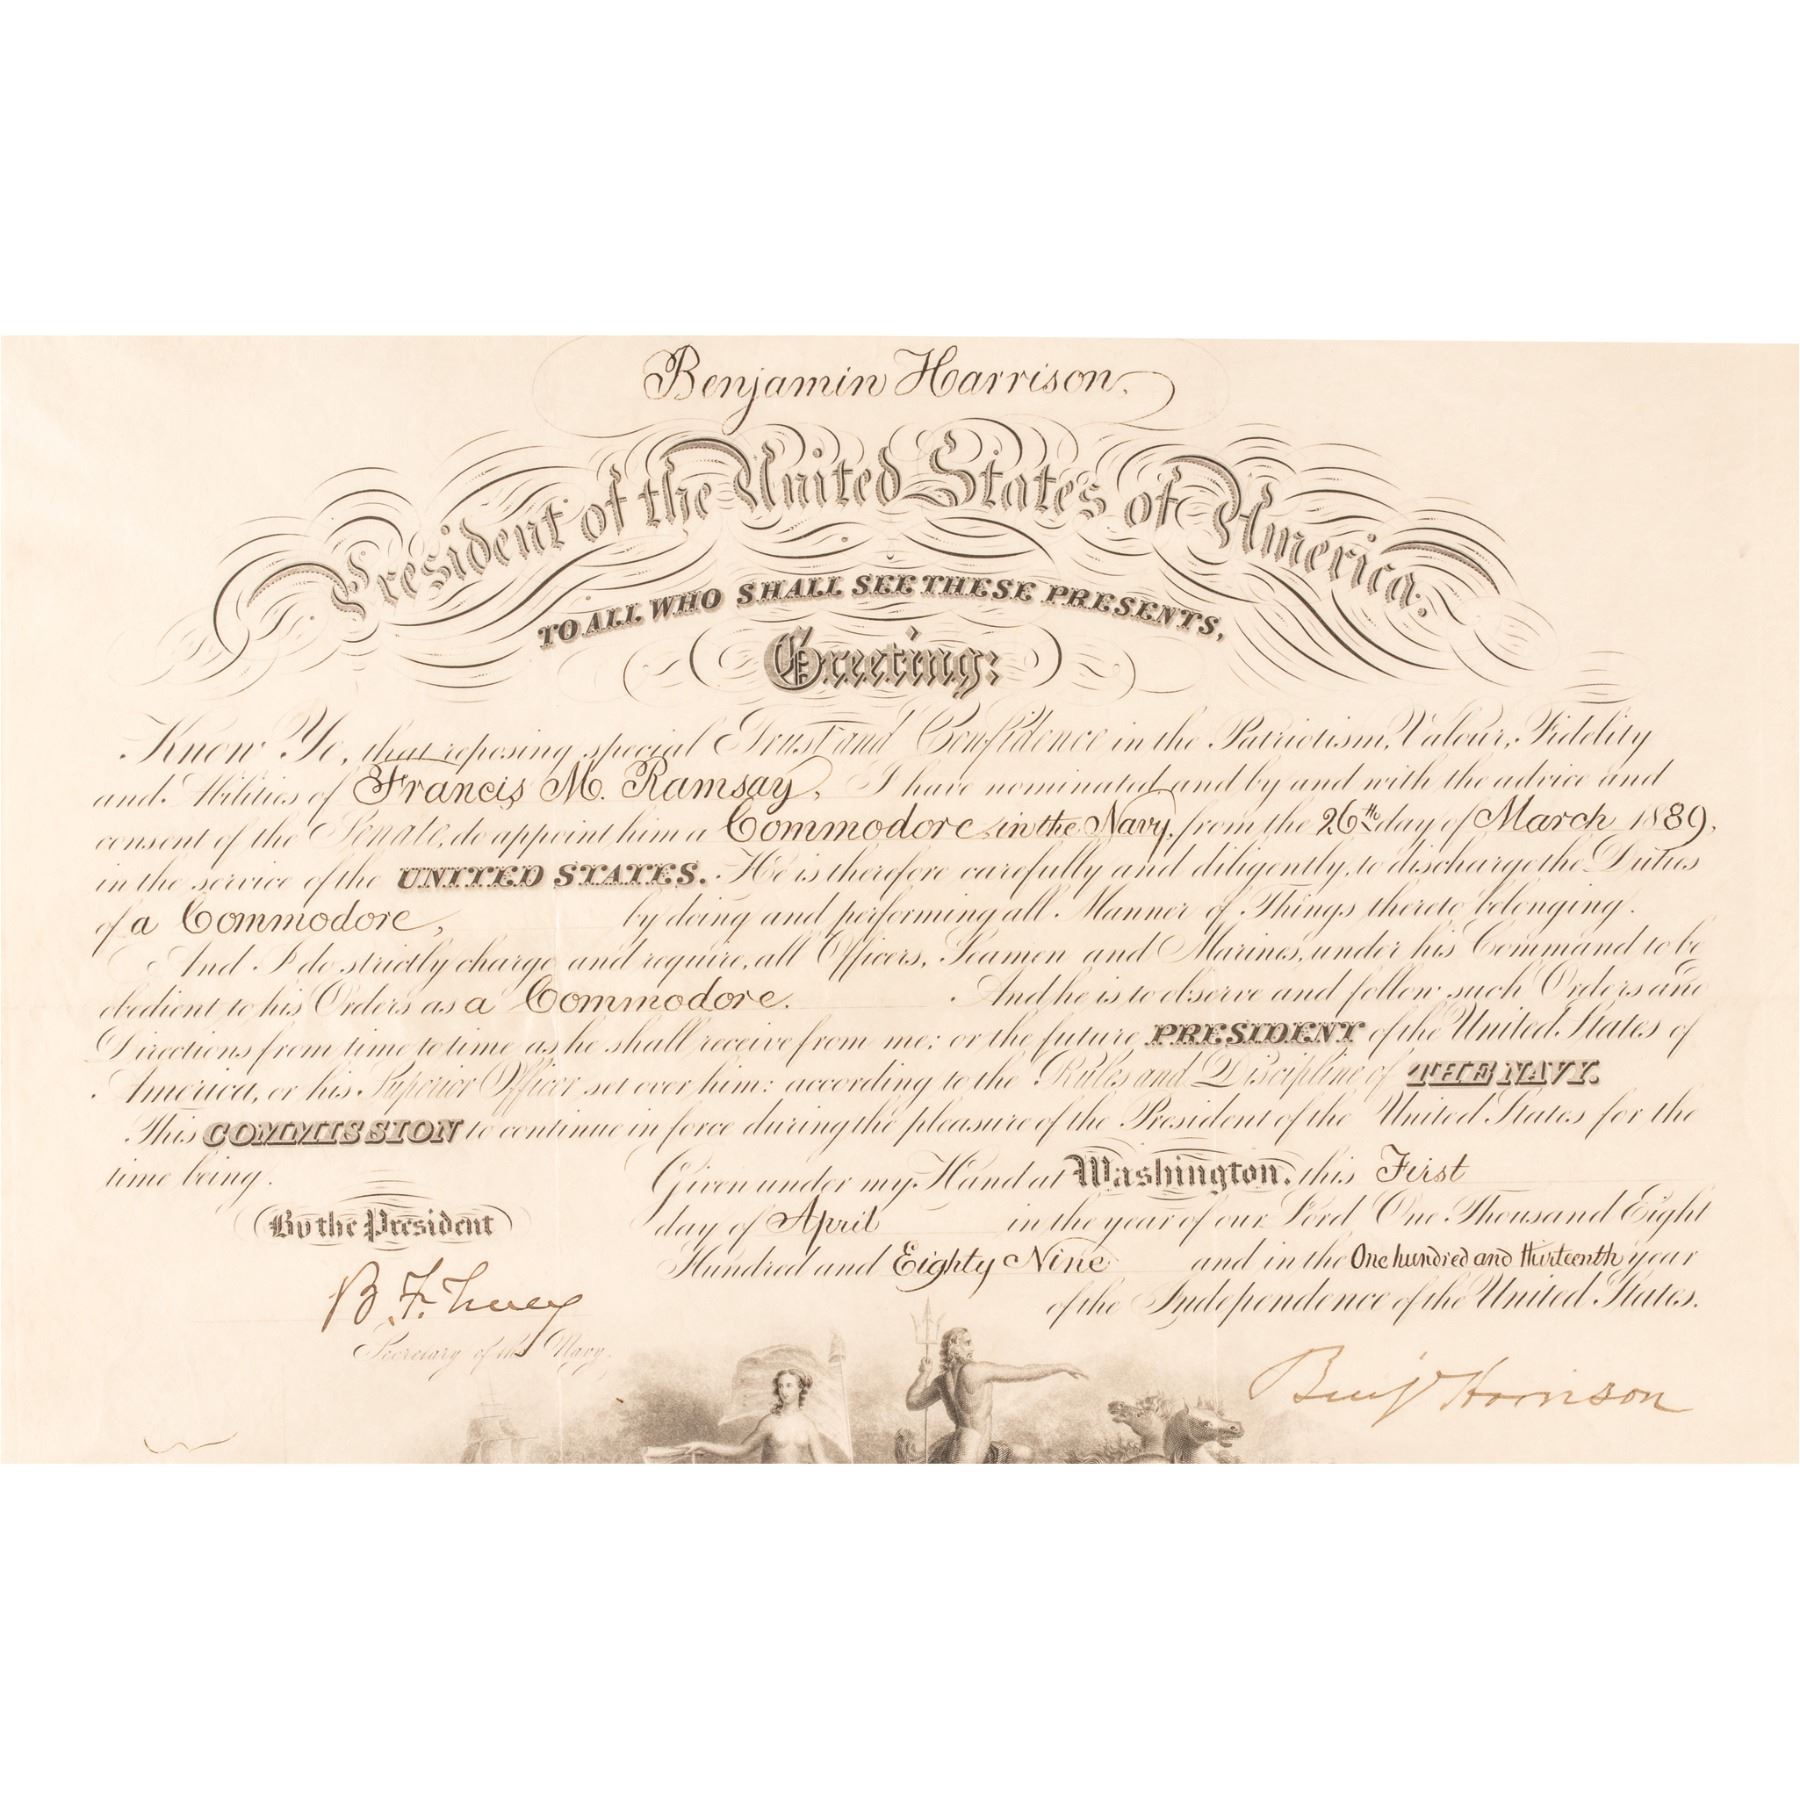 Benjamin Harrison,
President of the United States of America.
TO ALL WHO SHALL SEE THESE PRESENTS,
Greeting:
Know Ye, that reposing special Trust and Confidence in the Patriotism, Valour, Fidelity
and Abilities of Francis M. Ramsay, I have nominated and by and with the advice and
consent of the Senate, do appoint him a Commodore in the Navy, from the 26th day of March 1889,
in the service of the UNITED STATES. He is therefore carefully and diligently, to discharge the Duties
of a Commodore, by doing and performing all Manner of Things thereto belonging.
And I do strictly charge and require, all Officers, Seamen and Marines, under his Command to be
obedient to his Orders as a Commodore. And he is to observe and follow such Orders and
Directions from time to time as he shall receive from me: or the future PRESIDENT of the United States of
America, or his Superior Officer set over him: according to the Rules and Discipline of THE NAVY.
This COMMISSION to continue in force during the pleasure of the President of the United States for the
time being.
Given under my Hand at Washington, this First
day of April in the year of our Lord One Thousand Eight
Hundred and Eighty Nine and in the One hundred and thirteenth year
of the Independence of the United States.
By the President
B. F. Tracy
Secretary of the Navy.
Benj Harrison